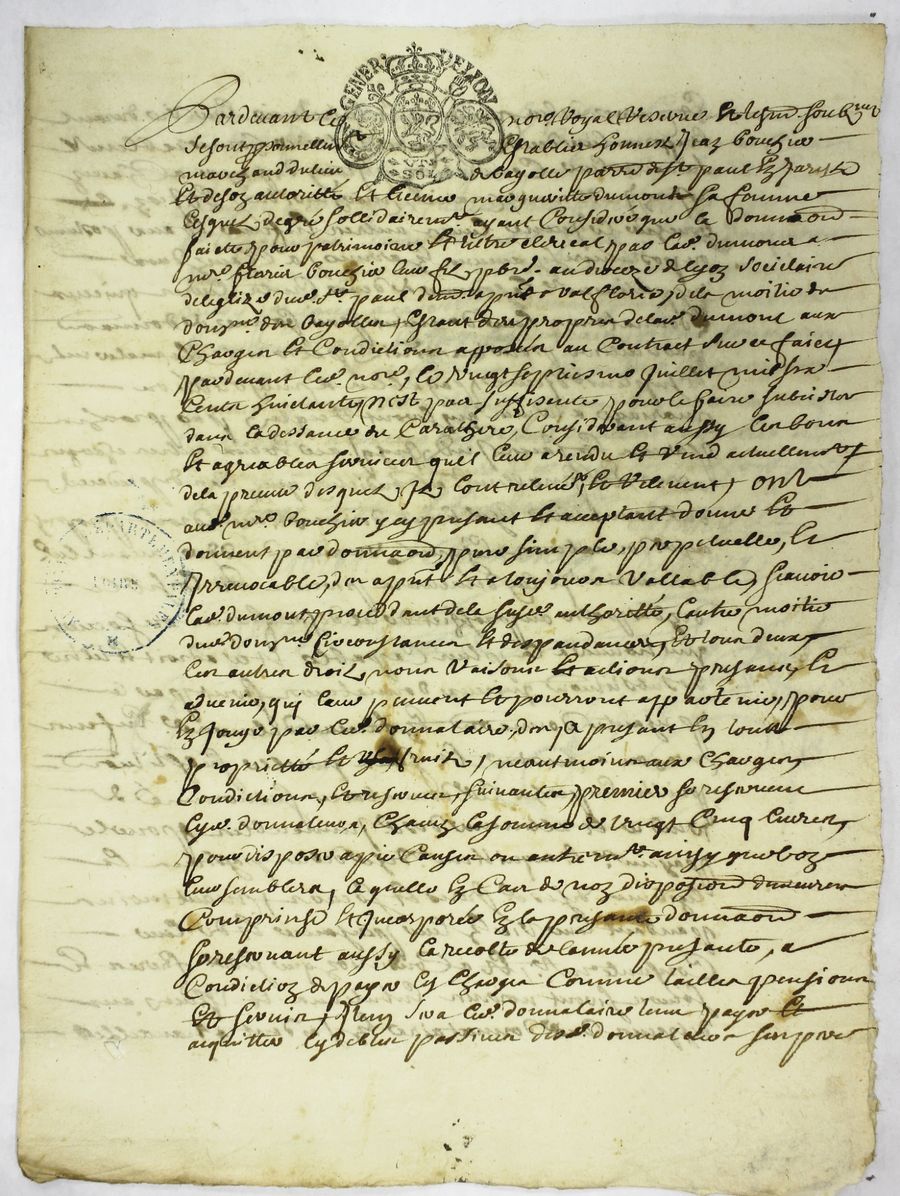 GENER DE LYON
VN SOL
Pardevant le nore. Royal reservé et tesmd soubznez
se sont personnellem establis honneste Jean bouchie
marchand du lieu de bayolle parre de st paul en Jarestz
et de son autoritté et licence marguerite dumont sa femme
lesquelz de gre sollidairement ayant Considéré que la donnaon
faicte pour patrimoine et tiltre clerical par lad. dumont a
mre. floris bouchie leur filz pbre. au dioceze de lyon societaire
de leglize dud. st paul de la moitié du
domne. de bayolle, estant des propres de lad. dumont aux
Charges et Conditions apposees au Contract sur ce faict
pardevant led. nore., le vingt septiesme Juillet mil six
cents huictante, n'est pas suffisante pour le faire subsister
dans la dessance du Caractere, Considerant aussy les bons
et agreables services qu'il leur a rendu et rend actuellement
de la preuve desquelz, ilz l'ont relevé, et relevent, ont
aud. mre. bouchie y cy present et acceptant donné et
donnent par donnaon, pure simple, perpetuelle, et
Irrevocable, des apnt et a toujours vallable, scavoir
lad. dumont, proceddant de la susd. authoritté, l'autre moitié
dud. domne. Circonstances et despandances, et tous deux,
les autres droitz, noms raisons et actions presants, et
advenir, qui leur peuvent et pourront appartenir, pour
en Jouyr par led. donnataire, des a present en toute
proprietté et fruitz, neantmoins aux Charges,
Conditions, et reserves, suivantes, premier se reservent
lesd. donnateurs, Chacun la somme de vingt Cinq livres,
pour disposer a pie Causes ou autrement ainsy que bon
leur semblera, laquelle en Cas de non disposion demeurera
Comprinse et Incorporée en la presante donnaon
se reservant aussy la recolte de l'année presante, a
Condition de payer les Charges Comme tailles pensions
et servis, Item sera led. donnataire tenu payer et
acquitter les debtes passives desd. donnateurs